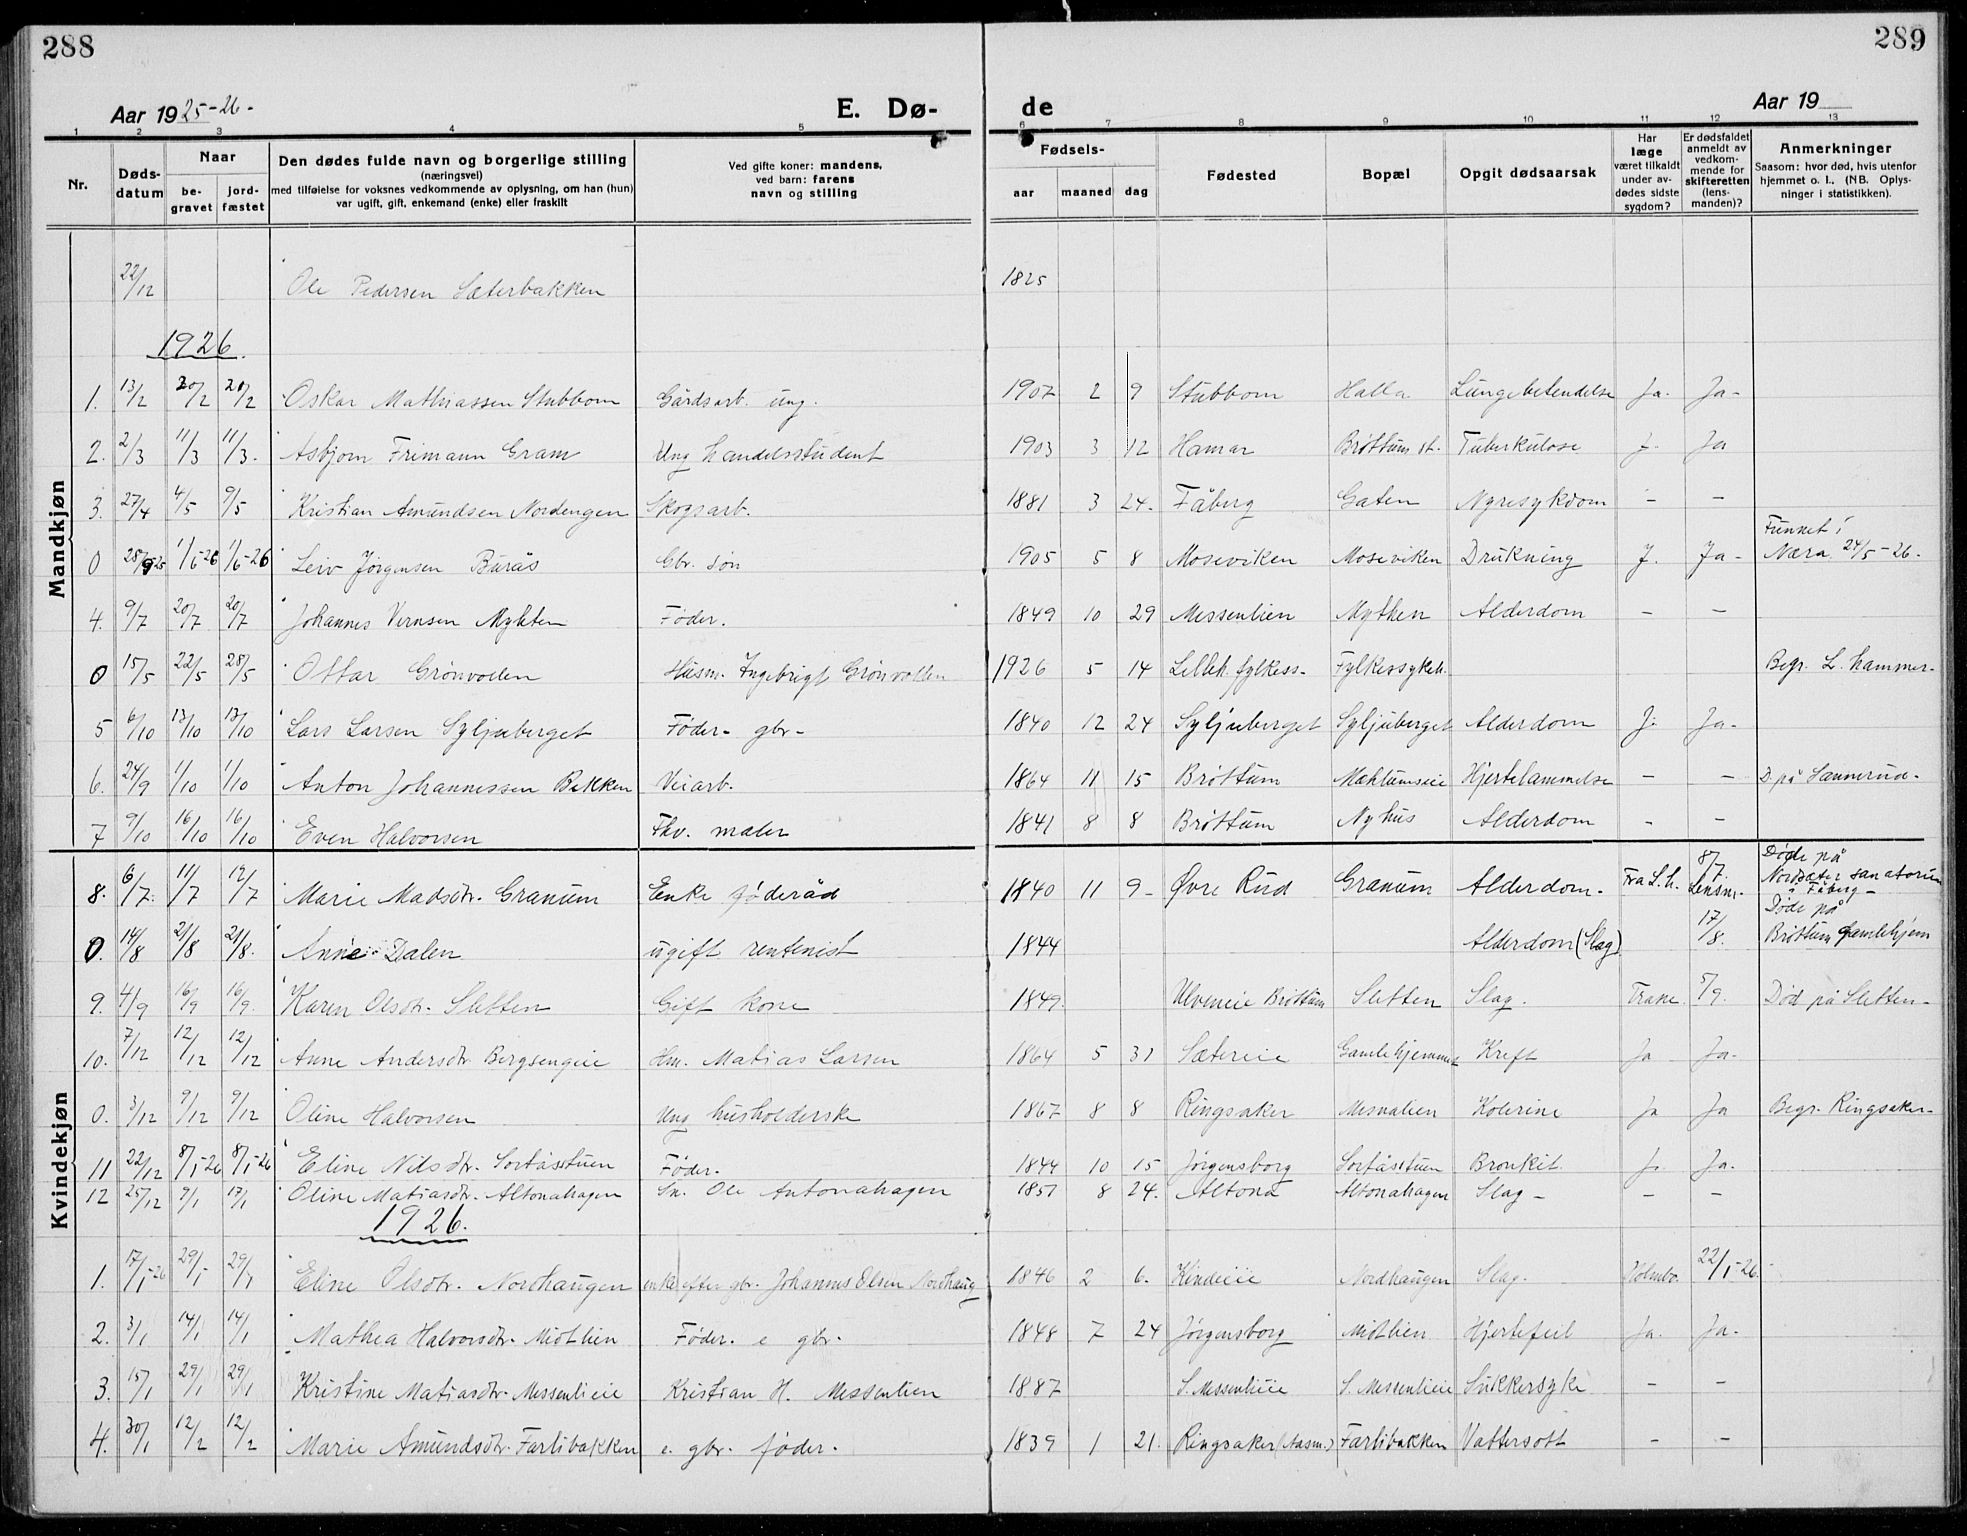 288
289
Aar 1925-26-
E. Dø-
de
Aar 19
1 2 3 4 5 6 7 8 9 10 11 12 13
Nr.
Døds-
datum
Naar
be-
gravet
jord-
fæstet
Den dødes fulde navn og borgerlige stilling
(næringsvei)
med tilføielse for voksnes vedkommende av oplysning, om han (hun)
var ugift, gift, enkemand (enke) eller fraskilt
Ved gifte koner: mandens,
ved barn: farens
navn og stilling
Fødsels-
aar maaned dag
Fødested
Bopæl
Opgit dødsaarsak
Har
læge
været tilkaldt
under av-
dødes sidste
sygdom?
Er dødsfaldet
anmeldt av
vedkom-
mende for
skifteretten
(lens-
manden)?
Anmerkninger
Saasom: hvor død, hvis utenfor
hjemmet o. l. (NB. Oplys-
ninger i statistikken).
Mandkjøn
22/12 Ole Pedersen Sæterbakken 1825
1926.
1. 13/2 20/2 20/2 Oskar Mathiassen Stubbom Gårdsart. ung. 1907 2 9 Stubbom Halla Lungebetendelse Ja. Ja-
2. 2/3 11/3 11/3. Asbjørn Frimann Gram Ung handelsstudent 1903 3 12 Hamar Brøttum st. Tuberkulose J. Ja
3. 27/4 4/5 9/5 Kristian Amundsen Nordengen Skogsarb. 1881 3 24. Fåberg Gaten Nyresykdom - -
Funnet i
0 28/9 25 1/6-26 1/6-26 Leiv Jørgensen Burås Gbr. søn 1905 5 8 Moseviken Moseviken Drukning J. Ja- Næra 24/5-26.
4. 9/7 20/7 20/7 Johannes Vernsen Myhten Føder. 1849 10 29 Messenlien Mythen Alderdom - -
0 15/5 22/5 28/5 Ottar Grønvollen Husm. Ingebrigt Grønvollen 1926 5 14 Lilleh. fylkess- Fylkessykeh. Begr. L. hammer-
5 6/10 13/10 13/10 Lars Larsen Syljuberget Føder- gbr- 1840 12 24 Syljuberget Syljuberget Alderdom J. Ja-
6. 24/9 1/10 1/10 Anton Johannessen Bakken Veiarb. 1864 11 15 Brøttum Mæhlumseie Hjertelammelse - - D. på Sannerud-
7 9/10 16/10 16/10 Even Halvorsen Fhv. maler 1841 8 8 Brøttum Nyhus Alderdom - -
Kvindekjøn
8. 6/7. 11/7 12/7 Marie Madsdtr. Granum Enke føderåd 1840 11 9- Øvre Rud Granum Alderdom- Fra L.h. 8/7. Lensm. Døde på
Nordsæter sanatorium
i Fåberg-
0. 14/8 21/8 21/8. Anne Dalen ugift rentenist 1844 Alderdom (Slag) 17/8. Døde på
Brøttum Gamlehjem
9. 4/9 16/9 16/9. Karen Olsdtr. Sletten Gift kone 1849. Ulveneie Brøttum Sletten Slag. Trane. 5/9. Død på Sletten-
10. 7/12 12/12 12/12 Anne Andersdtr Bergsengeie Hm. Matias Larsen 1864 5 31 Sætereie Gamlehjemmet Kreft Ja Ja-
0. 3/12 9/12 9/12 Oline Halvorsen Ung husholderske 1867 8 8 Ringsaker Mesnalien Kolerine Ja Ja Begr. Ringsaker-
11 22/12 8/1-26 8/1-26 Eline Nilsdtr. Sortåsstuen Føder. 1844 10 15 Jørgensborg Sortåsstuen Bronkit. J. Ja.
12 25/12 9/1 17/1 Oline Matiasdtr. Altonahagen Sn. Ole Antonahagen 1851 8 24. Altona Altonahagen Slag- - -
1926.
1. 17/1-26 29/1 29/1 Eline Olsdtr. Nordhaugen enke efter gbr. Johannes Olsen Nordhaug 1846 2 6. Kindeeie Nordhaugen Slag. Holmbo. 22/1-26.
2. 3/1 14/1 14/1 Mathea Halvorsdtr. Midtlien Føder. e gbr. 1848 7 24 Jørgensborg Midtlien Hjertefeil Ja. Ja-
3. 15/1 29/1 29/1 Kristine Matiasdtr. Messenlieie Kristian H. Messenlien 1887 S. Messenlieie S. Messenlieie Sukkersyke - -
4. 30/1 12/2 12/2 Marie Amundsdtr. Farlibakken e. gbr. føder. 1839 1 21. Ringsaker (Aasm.) Farlibakken Vattersott - -